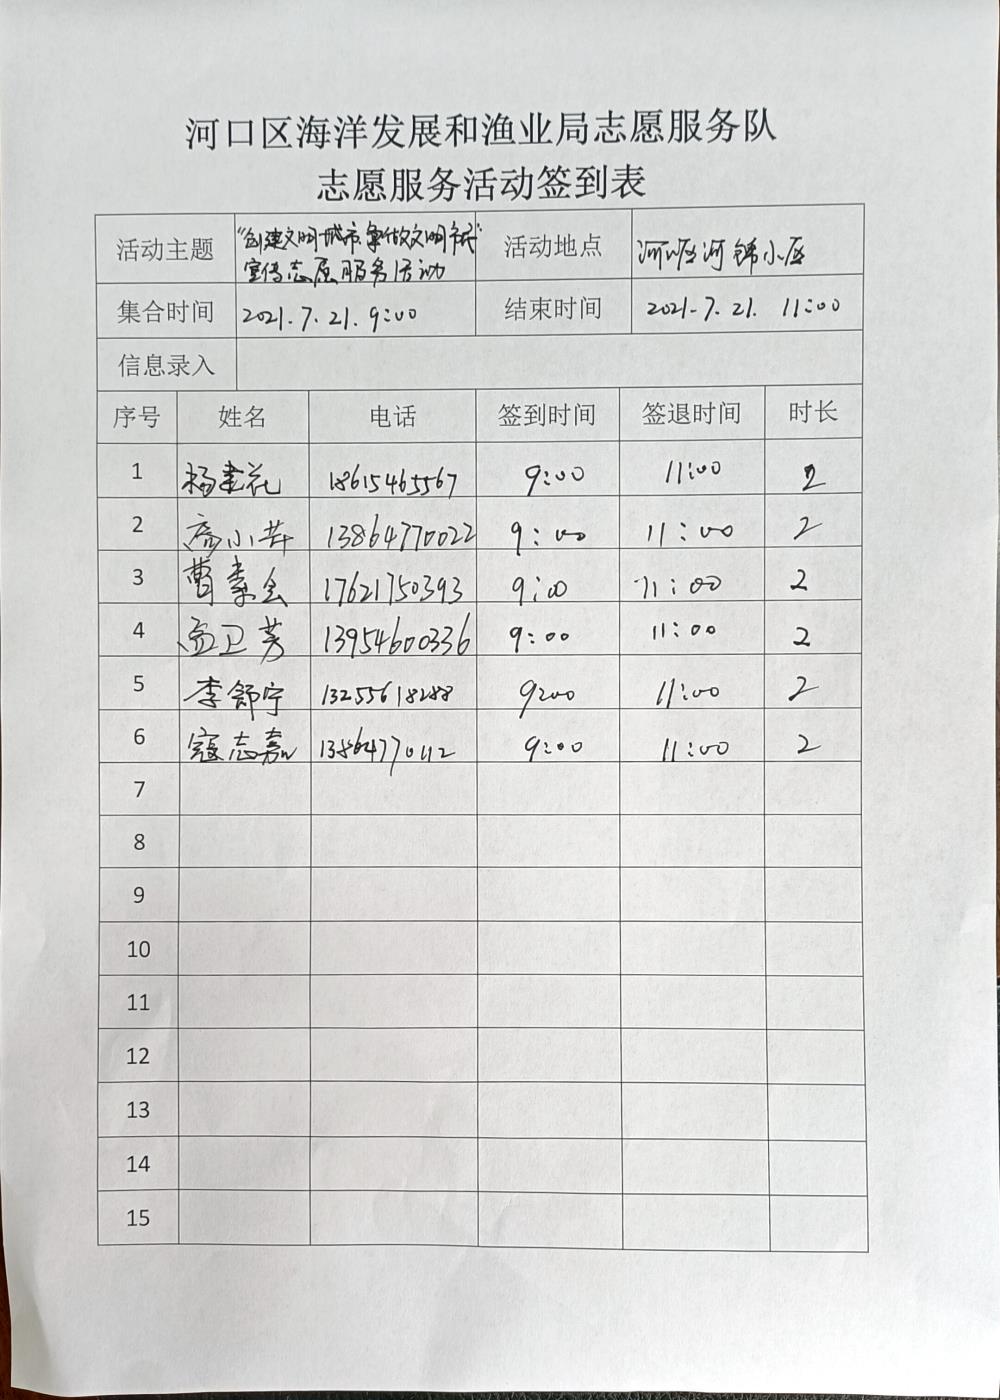 河口区海洋发展和渔业局志愿服务队
志愿服务活动签到表
活动主题 "创建文明城市 争做文明市民" 活动地点 河口区河锦小区
宣传志愿服务活动
集合时间 2021.7.21. 9:00 结束时间 2021.7.21. 11:00
信息录入
序号 姓名 电话 签到时间 签退时间 时长
1 杨建花 18615465567 9:00 11:00 2
2 小 13864770022 9:00 11:00 2
3 曹素会 17621750393 9:00 11:00 2
4 孟卫芳 13954600336 9:00 11:00 2
5 李舒宁 13255618288 9:00 11:00 2
6 寇志嘉 13864770112 9:00 11:00 2
7
8
9
10
11
12
13
14
15